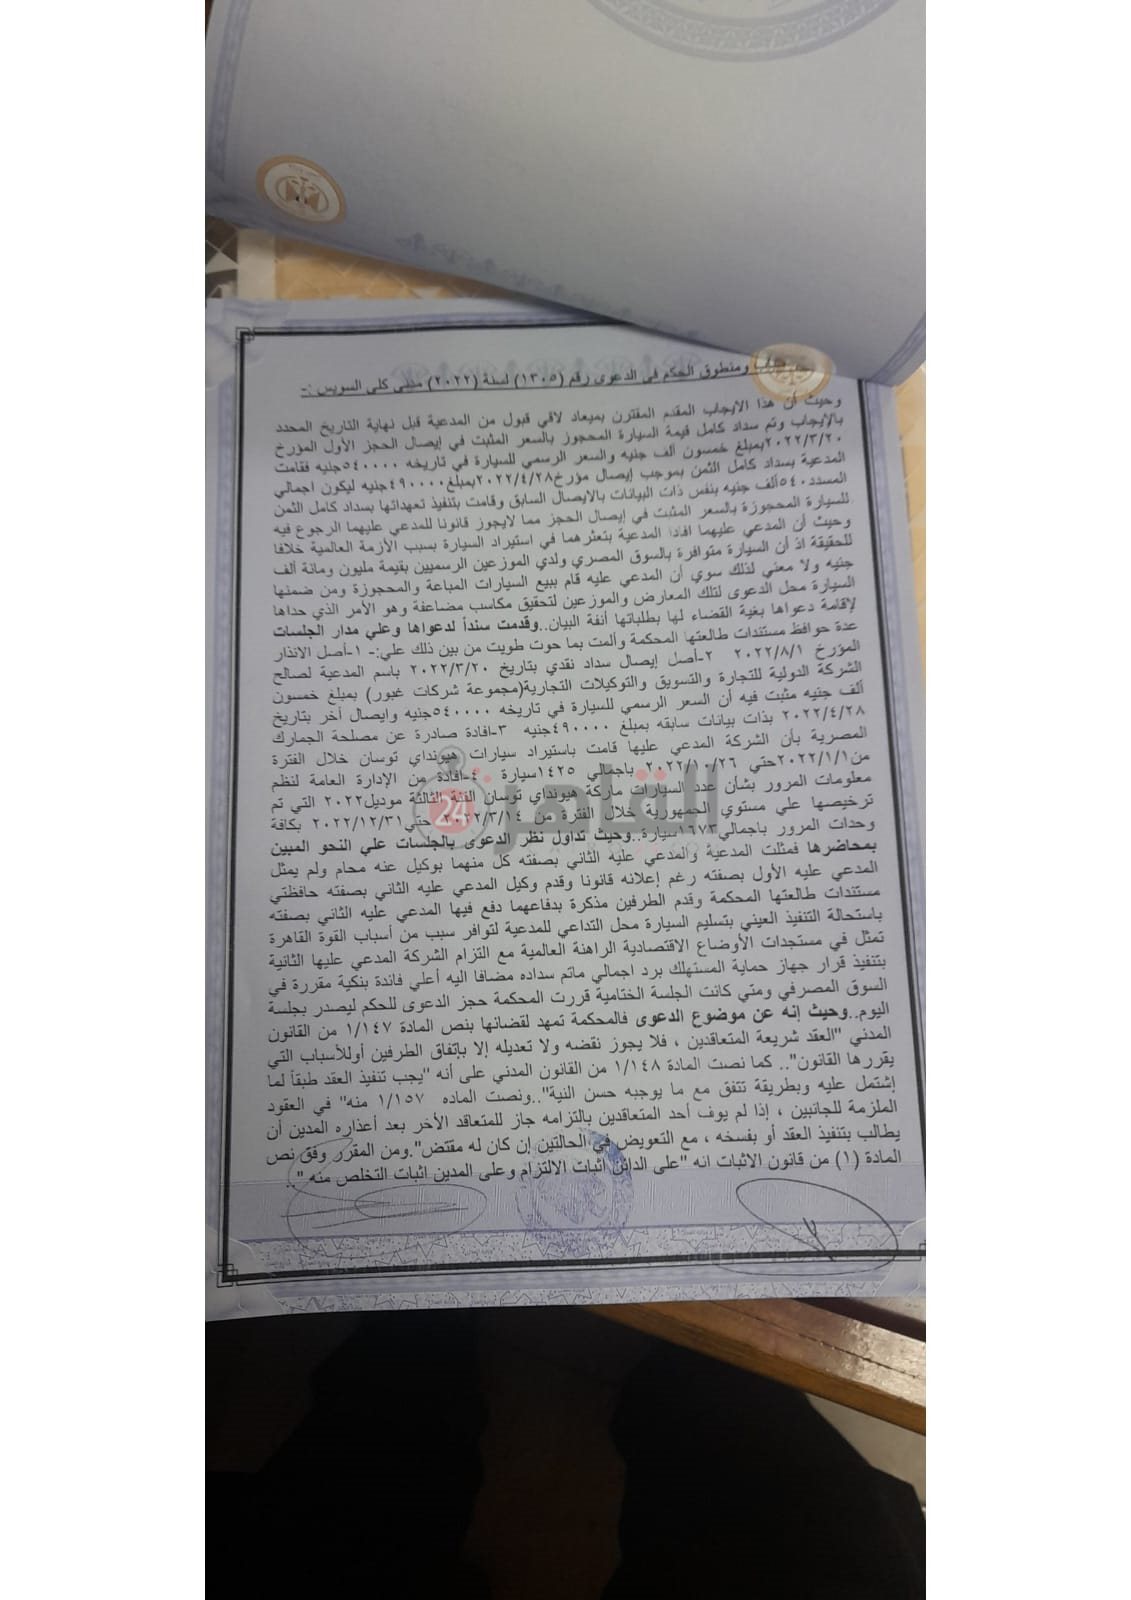 ومنطوق الحكم في الدعوى رقم (١٣٠٥) لسنة (٢٠٢٢) مدني كلي السويس :-
وحيث أن هذا الايجاب المقدم المقترن بميعاد لاقي قبول من المدعية قبل نهاية التاريخ المحدد
بالإيجاب وتم سداد كامل قيمة السيارة المحجوز بالسعر المثبت في إيصال الحجز الأول المؤرخ
٢٠٢٢/٣/٢٠بمبلغ خمسون ألف جنيه والسعر الرسمي للسيارة في تاريخه ٥٤٠٠٠٠جنيه فقامت
المدعية بسداد كامل الثمن بموجب إيصال مؤرخ٢٠٢٢/٤/٢٨بمبلغ٤٩٠٠٠٠جنيه ليكون اجمالي
المسدد٥٤٠ألف جنيه بنفس ذات البيانات بالايصال السابق وقامت بتنفيذ تعهداتها بسداد كامل الثمن
للسيارة المحجوزة بالسعر المثبت في إيصال الحجز مما لايجوز قانونا للمدعي عليهما الرجوع فيه
وحيث أن المدعي عليهما افادا المدعية بتعثرهما في استيراد السيارة بسبب الأزمة العالمية خلافا
للحقيقة اذ أن السيارة متوافرة بالسوق المصري ولدي الموزعين الرسميين بقيمة مليون ومائة ألف
جنيه ولا معني لذلك سوي أن المدعي عليه قام ببيع السيارات المباعة والمحجوزة ومن ضمنها
السيارة محل الدعوى لتلك المعارض والموزعين لتحقيق مكاسب مضاعفة وهو الأمر الذي حداها
لإقامة دعواها بغية القضاء لها بطلباتها أنفة البيان..وقدمت سنداً لدعواها وعلي مدار الجلسات
عدة حوافظ مستندات طالعتها المحكمة وألمت بما حوت طويت من بين ذلك علي:- ١-أصل الانذار
المؤرخ ٢٠٢٢/٨/١ ٢-أصل إيصال سداد نقدي بتاريخ ٢٠٢٢/٣/٢٠ باسم المدعية لصالح
الشركة الدولية للتجارة والتسويق والتوكيلات التجارية(مجموعة شركات غبور) بمبلغ خمسون
ألف جنيه مثبت فيه أن السعر الرسمي للسيارة في تاريخه ٥٤٠٠٠٠جنيه وايصال أخر بتاريخ
٢٠٢٢/٤/٢٨ بذات بيانات سابقه بمبلغ ٤٩٠٠٠٠جنيه ٣-افادة صادرة عن مصلحة الجمارك
المصرية بأن الشركة المدعي عليها قامت باستيراد سيارات هيونداي توسان خلال الفترة
من٢٠٢٢/١/١حتي ٢٠٢٢/١٠/٢٦ باجمالي ١٤٢٥سيارة ٤-افادة من الإدارة العامة لنظم
معلومات المرور بشأن عدد السيارات ماركة هيونداي توسان الفئة الثالثة موديل٢٠٢٢ التي تم
ترخيصها علي مستوي الجمهورية خلال الفترة من ٢٠٢٢/٣/١٤ حتي٢٠٢٢/١٢/٣١ بكافة
وحدات المرور باجمالي١٦٧٣سيارة..وحيث تداول نظر الدعوى بالجلسات علي النحو المبين
بمحاضرها فمثلت المدعية والمدعي عليه الثاني بصفته كل منهما بوكيل عنه محام ولم يمثل
المدعي عليه الأول بصفته رغم إعلانه قانونا وقدم وكيل المدعي عليه الثاني بصفته حافظتي
مستندات طالعتها المحكمة وقدم الطرفين مذكرة بدفاعهما دفع فيها المدعي عليه الثاني بصفته
باستحالة التنفيذ العيني بتسليم السيارة محل التداعي للمدعية لتوافر سبب من أسباب القوة القاهرة
تمثل في مستجدات الأوضاع الاقتصادية الراهنة العالمية مع التزام الشركة المدعي عليها الثانية
بتنفيذ قرار جهاز حماية المستهلك برد اجمالي ماتم سداده مضافا اليه أعلي فائدة بنكية مقررة في
السوق المصرفي ومتي كانت الجلسة الختامية قررت المحكمة حجز الدعوى للحكم ليصدر بجلسة
اليوم..وحيث إنه عن موضوع الدعوى فالمحكمة تمهد لقضائها بنص المادة ١/١٤٧ من القانون
المدني "العقد شريعة المتعاقدين ، فلا يجوز نقضه ولا تعديله إلا بإتفاق الطرفين أوللأسباب التي
يقررها القانون".. كما نصت المادة ١/١٤٨ من القانون المدني على أنه "يجب تنفيذ العقد طبقاً لما
إشتمل عليه وبطريقة تتفق مع ما يوجبه حسن النية"..ونصت الماده ١/١٥٧ منه" في العقود
الملزمة للجانبين ، إذا لم يوف أحد المتعاقدين بالتزامه جاز للمتعاقد الأخر بعد أعذاره المدين أن
يطالب بتنفيذ العقد أو بفسخه ، مع التعويض في الحالتين إن كان له مقتض".ومن المقرر وفق نص
المادة (١) من قانون الاثبات انه "على الدائن اثبات الالتزام وعلى المدين اثبات التخلص منه "..
القاهرة 24